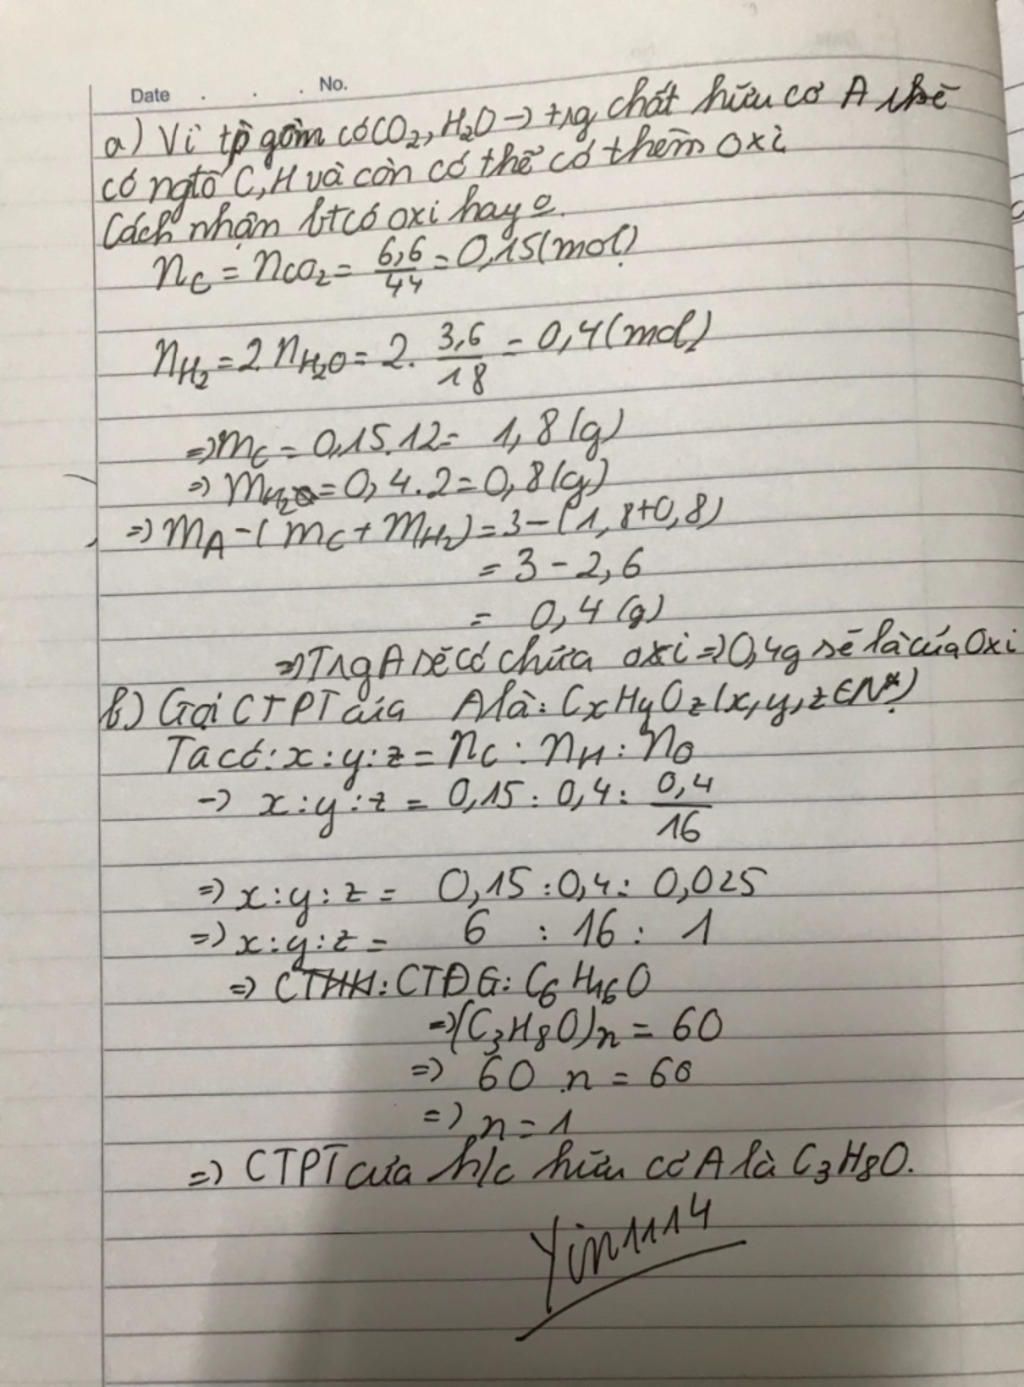 Date . . . No.
a) Vì tp gồm có CO2, H2O → trg chất hữu cơ A sẽ
có ngtố C, H và còn có thể có thêm oxi
Cách nhận bt có oxi hay 0.
nC = nCO2 = 6,6/44 = 0,15 (mol)
nH2 = 2.nH2O = 2. 3,6/18 = 0,4 (mol)
⇒ mC = 0,15.12 = 1,8 (g)
⇒ mH2 = 0,4.2 = 0,8 (g)
⇒ mA - (mC + mH2) = 3 - (1,8+0,8)
= 3 - 2,6
= 0,4 (g)
⇒ Trg A sẽ có chứa oxi ⇒ 0,4g sẽ là của Oxi
b) Gọi CTPT của A là: CxHyOz (x, y, z ∈ N*)
Ta có: x : y : z = nC : nH : nO
→ x : y : z = 0,15 : 0,4 : 0,4/16
⇒ x : y : z = 0,15 : 0,4 : 0,025
⇒ x : y : z = 6 : 16 : 1
⇒ CTHH: CTĐG: C6H16O
⇒ (C3H8O)n = 60
⇒ 60 .n = 60
⇒ n = 1
⇒ CTPT của h/c hữu cơ A là C3H8O.
Yin1114